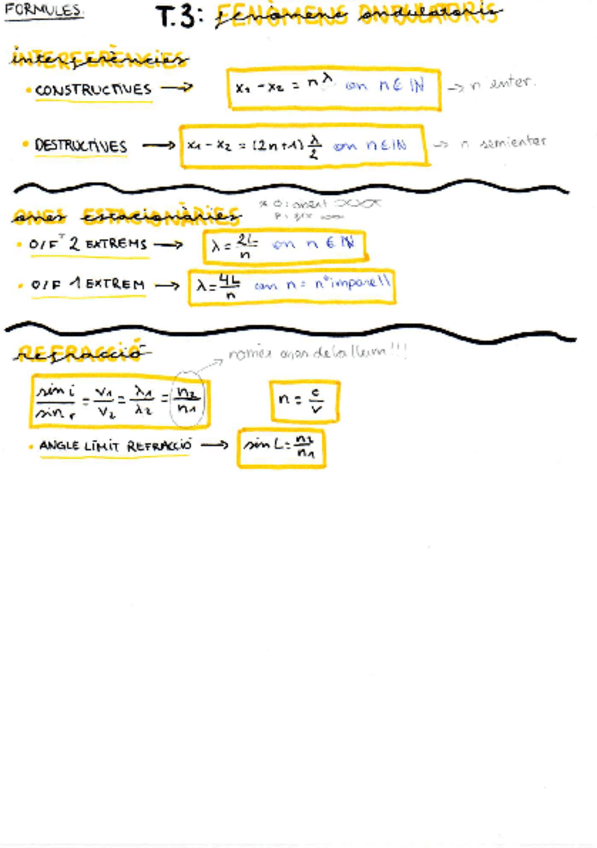 FORMULES.
T.3: fenòmens ondulatoris
interferències
• CONSTRUCTIVES → x₁ - x₂ = nλ on n ∈ ℕ → n enter.
• DESTRUCTIVES → x₁ - x₂ = (2n+1) λ/2 on n ∈ ℕ → n semienter
ones estacionàries
• O/F 2 EXTREMS → λ = 2L/n on n ∈ ℕ
• O/F 1 EXTREM → λ = 4L/n on n = nº imparell
refracció
només ones de la llum!!!
sin i/sin r = v₁/v₂ = λ₁/λ₂ = n₂/n₁
n = c/v
• ANGLE LÍMIT REFRACCIÓ → sin L = n₂/n₁